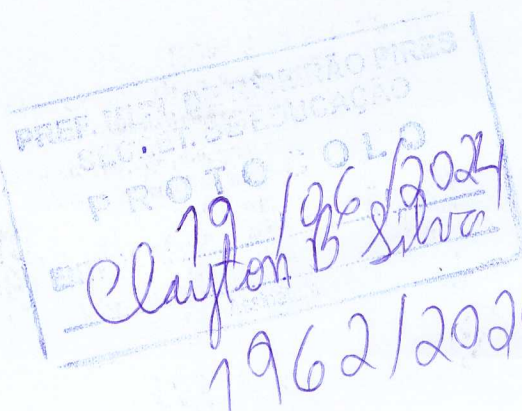 PREF. MUN. DE RIBEIRÃO PIRES
SECRET. DE EDUCAÇÃO
PROTOCOLO
19/06/2024
Clayton B Silva
1962/202